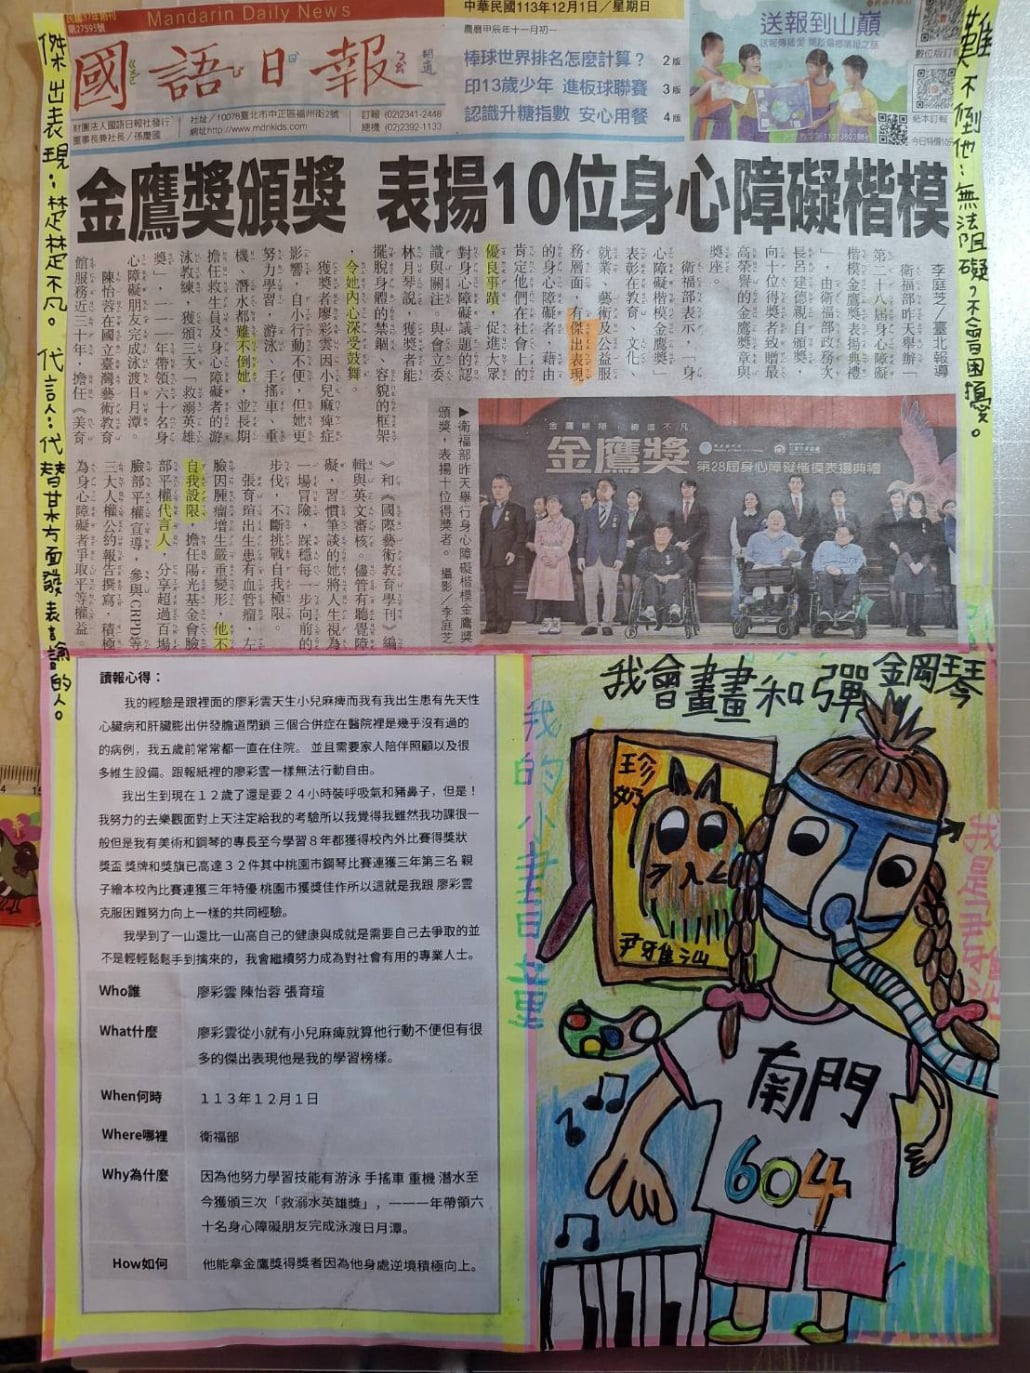 民國37年創刊
第27595號
Mandarin Daily News
國語日報
財團法人國語日報社發行
董事長兼社長／孫慶國
社址／10078臺北市中正區福州街2號
網址http://www.mdnkids.com
訂報 (02)2341-2448
總機 (02)2392-1133
中華民國113年12月1日／星期日
農曆甲辰年十一月初一
棒球世界排名怎麼計算？ 2版
印13歲少年 進板球聯賽 3版
認識升糖指數 安心用餐 4版
送報到山巔
金鷹獎頒獎 表揚10位身心障礙楷模
李庭芝／臺北報導
衛福部昨天舉辦「
第二十八屆身心障礙
楷模金鷹獎表揚典禮
」，由衛福部政務次
長呂建德親自頒獎，
向十位得獎者致贈最
高榮譽的金鷹獎章與
獎座。
衛福部表示，「身
心障礙楷模金鷹獎」
表彰在教育、文化、
就業、藝術及公益服
務層面，有傑出表現
的身心障礙者，藉由
肯定他們在社會上的
優良事蹟，促進大眾
對身心障礙議題的認
識與關注。與會立委
林月琴說，獲獎者能
擺脫身體的禁錮、容貌的框架
，令她內心深受鼓舞。
獲獎者廖彩雲因小兒麻痺症
影響，自小行動不便，但她更
努力學習，游泳、手搖車、重
機、潛水都難不倒她，並長期
擔任救生員及身心障礙者的游
泳教練，獲頒三次「救溺英雄
獎」，一一一年帶領六十名身
心障礙朋友完成泳渡日月潭。
陳怡蓉在國立臺灣藝術教育
館服務近三十年，擔任《美育
》和《國際藝術教育學刊》編
輯與英文審核。儘管有聽覺障
礙，習慣筆談的她將人生視為
一場冒險，踩穩每一步向前的
步伐，不斷挑戰自我極限。
張育瑄出生患有血管瘤，左
臉因腫瘤增生嚴重變形，他不
自我設限，擔任陽光基金會臉
部平權代言人，分享超過百場
臉部平權宣導，參與CRPD等
三大人權公約報告撰寫，積極
為身心障礙者爭取平等權益
▶衛福部昨天舉行身心障礙楷模金鷹獎
頒獎，表揚十位得獎者。 攝影／李庭芝
金鷹獎
第28屆身心障礙楷模表揚典禮
難不倒他：無法阻礙，不會困擾。
傑出表現：楚楚不凡。 代言人：代替某方面發表言論的人。
讀報心得：
我的經驗是跟裡面的廖彩雲天生小兒麻痺而我有我出生患有先天性
心臟病和肝臟膨出併發膽道閉鎖 三個合併症在醫院裡是幾乎沒有過的
的病例，我五歲前常常都一直在住院。 並且需要家人陪伴照顧以及很
多維生設備。跟報紙裡的廖彩雲一樣無法行動自由。
我出生到現在１２歲了還是要２４小時裝呼吸氣和豬鼻子，但是！
我努力的去樂觀面對上天注定給我的考驗所以我覺得我雖然我功課很一
般但是我有美術和鋼琴的專長至今學習８年都獲得校內外比賽得獎狀
獎盃 獎牌和獎旗已高達３２件其中桃園市鋼琴比賽連獲三年第三名 親
子繪本校內比賽連獲三年特優 桃園市獲獎佳作所以這就是我跟 廖彩雲
克服困難努力向上一樣的共同經驗。
我學到了一山還比一山高自己的健康與成就是需要自己去爭取的並
不是輕輕鬆鬆手到擒來的，我會繼續努力成為對社會有用的專業人士。
Who誰 廖彩雲 陳怡蓉 張育瑄
What什麼 廖彩雲從小就有小兒麻痺就算他行動不便但有很
多的傑出表現他是我的學習榜樣。
When何時 １１３年１２月１日
Where哪裡 衛福部
Why為什麼 因為他努力學習技能有游泳 手搖車 重機 潛水至
今獲頒三次「救溺水英雄獎」，一一一年帶領六
十名身心障礙朋友完成泳渡日月潭。
How如何 他能拿金鷹獎得獎者因為他身處逆境積極向上。
我會畫畫和彈鋼琴
珍奶
尹雅汕
我是尹雅汕
南門
604